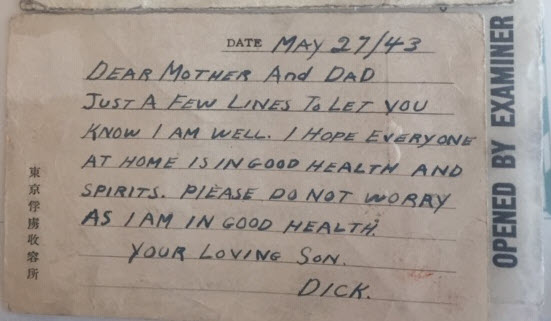 DATE MAY 27/43
DEAR MOTHER And DAD
JUST A FEW LINES To LET YOU
KNOW I AM WELL. I HOPE EVERYONE
AT HOME IS IN GOOD HEALTH AND
SPIRITS. PLEASE DO NOT WORRY
AS I AM IN GOOD HEALTH.
YOUR LOVING SON.
DICK.
東京俘虜收容所
OPENED BY EXAMINER